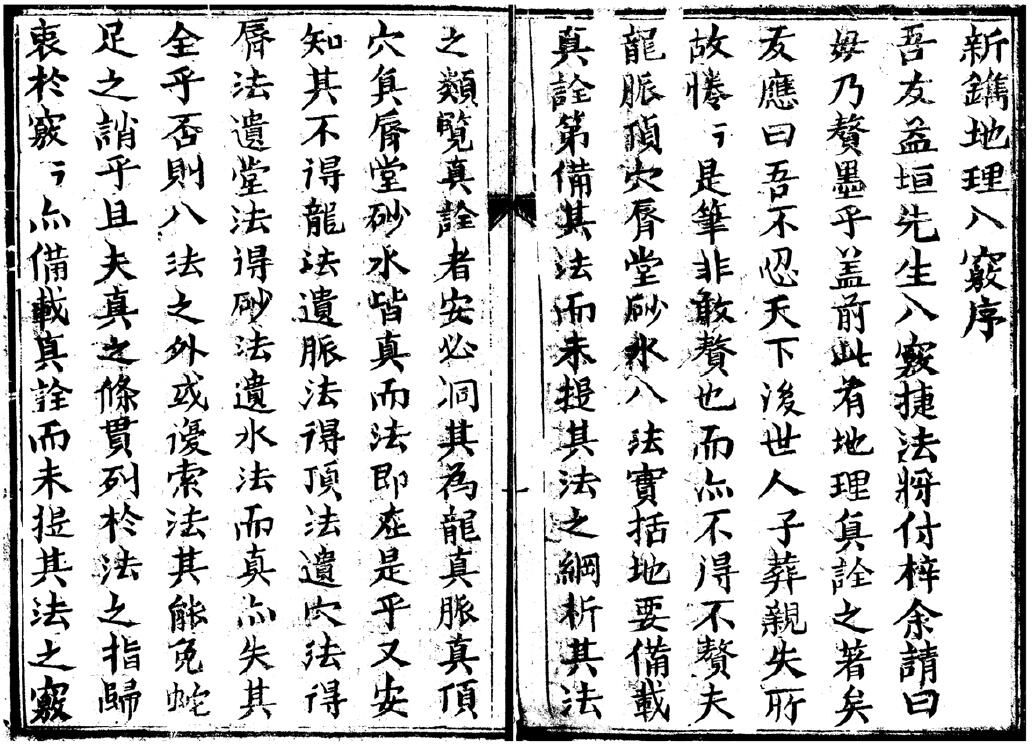 新鐫地理八竅序
吾友益垣先生八竅捷法將付梓余請曰
毋乃贅墨乎盖前此有地理真詮之著矣
友應曰吾不忍天下後世人子葬親失所
故惓〻是筆非敢贅也而亦不得不贅夫
龍脈頂穴脣堂砂水八法實括地要備載
真詮第備其法而未提其法之綱析其法
之類覽真詮者安必洞其為龍真脈真頂
穴真脣堂砂水皆真而法即在是乎又安
知其不得龍法遺脈法得頂法遺穴法得
脣法遺堂法得砂法遺水法而真亦失其
全乎否則八法之外或謾索法其能免蛇
足之誚乎且夫真之條貫列於法之指歸
衷於竅〻亦備載真詮而未提其法之竅